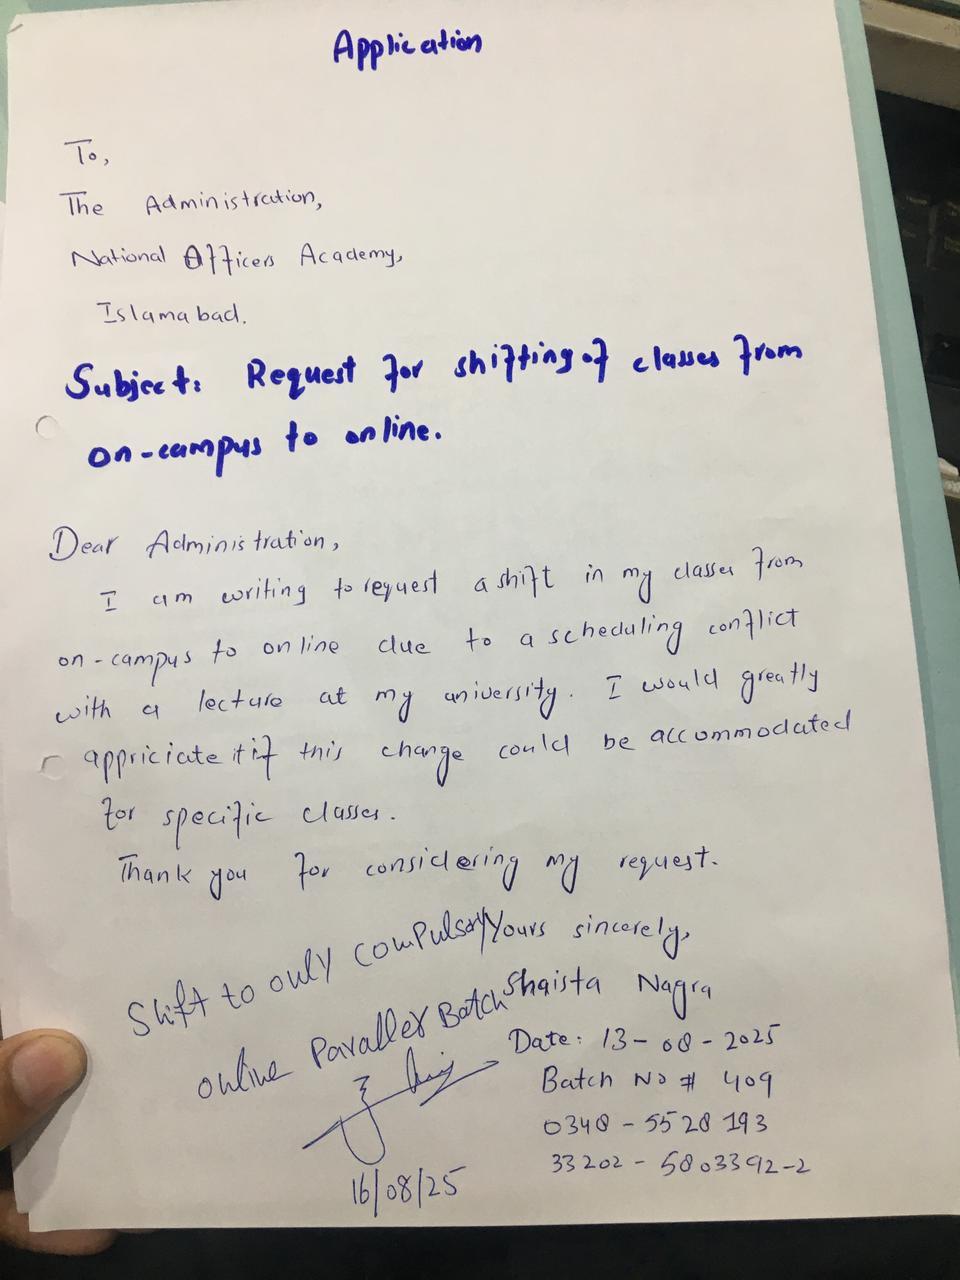 Application
To,
The Administration,
National Officers Academy,
Islamabad.
Subject: Request for shifting of classes from
on-campus to online.
Dear Administration,
I am writing to request a shift in my classes from
on-campus to online due to a scheduling conflict
with a lecture at my university. I would greatly
appriciate it if this change could be accommodated
for specific classes.
Thank you for considering my request.
Yours sincerely,
Shaista Nagra
Date: 13-08-2025
Batch No # 409
0348-5528193
33202-5803392-2
Shift to only compulsory
online Paraller Batch
16/08/25